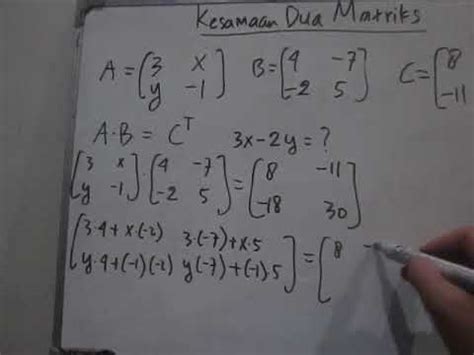 Kesamaan Dua Matriks
A = (3 x y -1) B = (4 -7 -2 5) C = (8 -11
A·B = Cᵀ 3x-2y = ?
[3 x y -1] · [4 -7 -2 5] = [8 -11 -18 30]
[3·4+x·(-2) 3·(-7)+x·5 y·4+(-1)(-2) y(-7)+(-1)·5] = [8 -